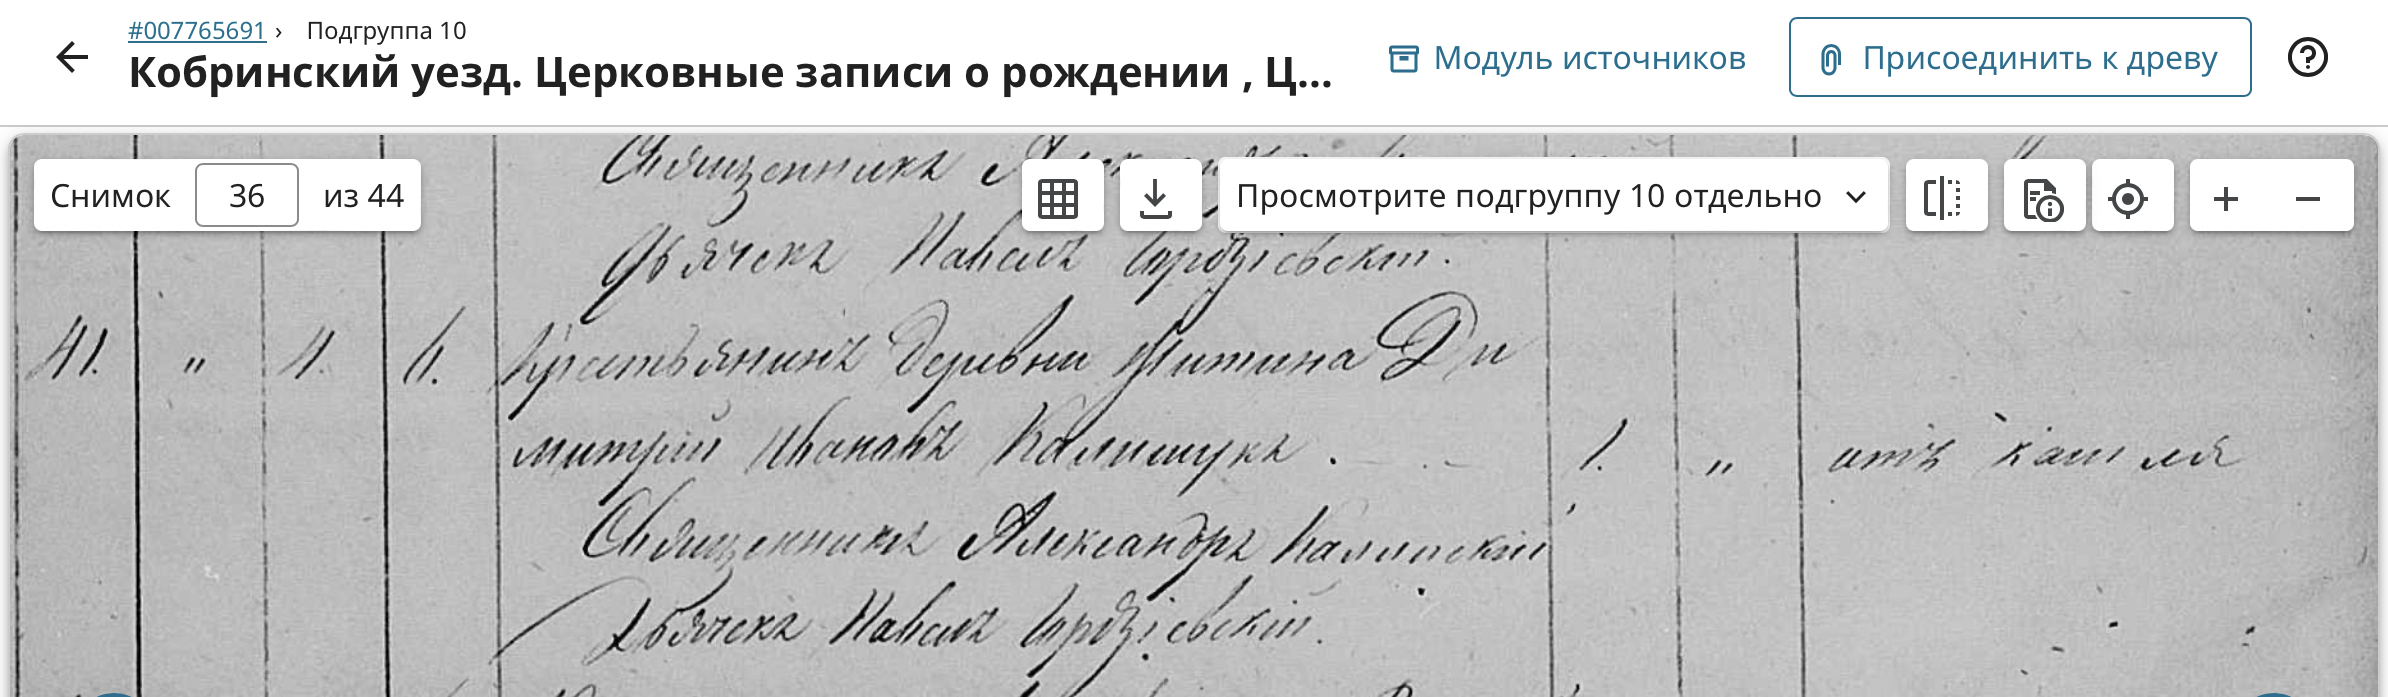 #007765691 › Подгруппа 10
Кобринский уезд. Церковные записи о рождении , Ц...
Модуль источников
Присоединить к древу
Снимок 36 из 44
Просмотрите подгруппу 10 отдельно
Священникъ
Дьячекъ Павелъ
41. „ 4. 6. Крестьянинъ деревни Литина Ди
митрий Ивановъ Калишукъ . 1. „ отъ кашля
Священникъ Александръ Калинскій
Дьячекъ Павелъ